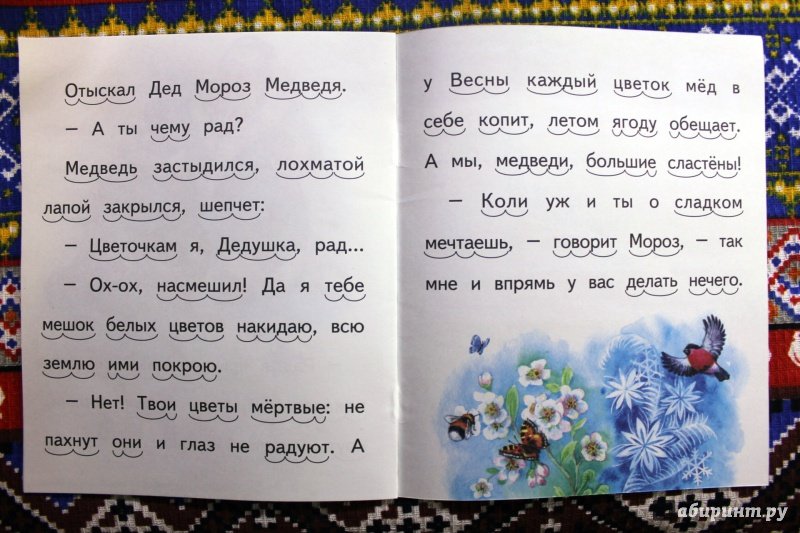 Отыскал Дед Мороз Медведя.
– А ты чему рад?
Медведь застыдился, лохматой
лапой закрылся, шепчет:
– Цветочкам я, Дедушка, рад...
– Ох-ох, насмешил! Да я тебе
мешок белых цветов накидаю, всю
землю ими покрою.
– Нет! Твои цветы мёртвые: не
пахнут они и глаз не радуют. А
у Весны каждый цветок мёд в
себе копит, летом ягоду обещает.
А мы, медведи, большие сластёны!
– Коли уж и ты о сладком
мечтаешь, – говорит Мороз, – так
мне и впрямь у вас делать нечего.
абиринт.ру